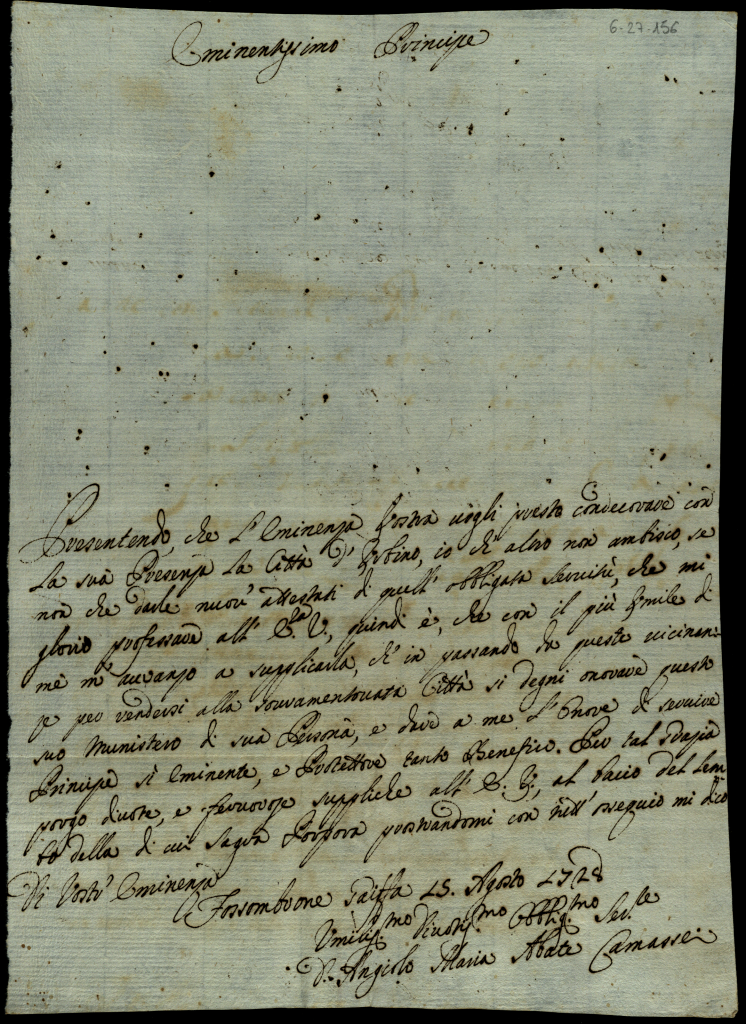 6-27-156
Eminentissimo Principe
Presentendo, che l'Eminenza Vostra vogli presto condecorare con
la sua Presenza la Città d'Urbino, io ch'altro non ambisco, se
non che darle nuovi attestati di quell'obbligata servitù, che mi
glorio professare all'E.za V., quindi è, che con il più Umile di
me m'avvanzo a supplicarla, ch'in passando da queste vicinan=
ze per rendersi alla sovramentovata Città si degni onorare questo
suo Munistero di sua Persona, e dare a me l'Onore di servire
Principe sì Eminente, e Protettore tanto Benefico. Per tal Grazia
porgo divote, e fervorose suppliche all'E. V., al bacio del Lem
bo della di cui Sagra Porpora prostrandomi con tutt'ossequio mi dico
Di Vostr'Eminenza
Fossombrone 15. Agosto 1728
Umilis.mo Divotis.mo Obblig.mo Ser.le
D. Angiolo Maria Abate Camassei